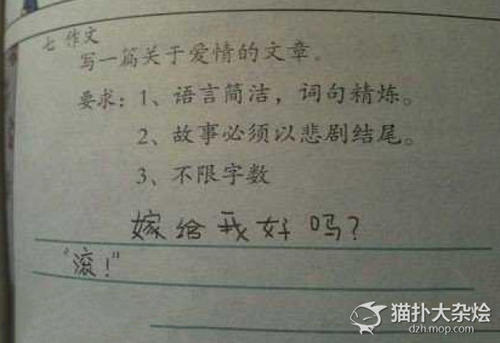 七 作文
写一篇关于爱情的文章。
要求：1、语言简洁，词句精炼。
2、故事必须以悲剧结尾。
3、不限字数
嫁给我好吗？
"滚！"
猫扑大杂烩
dzh.mop.com